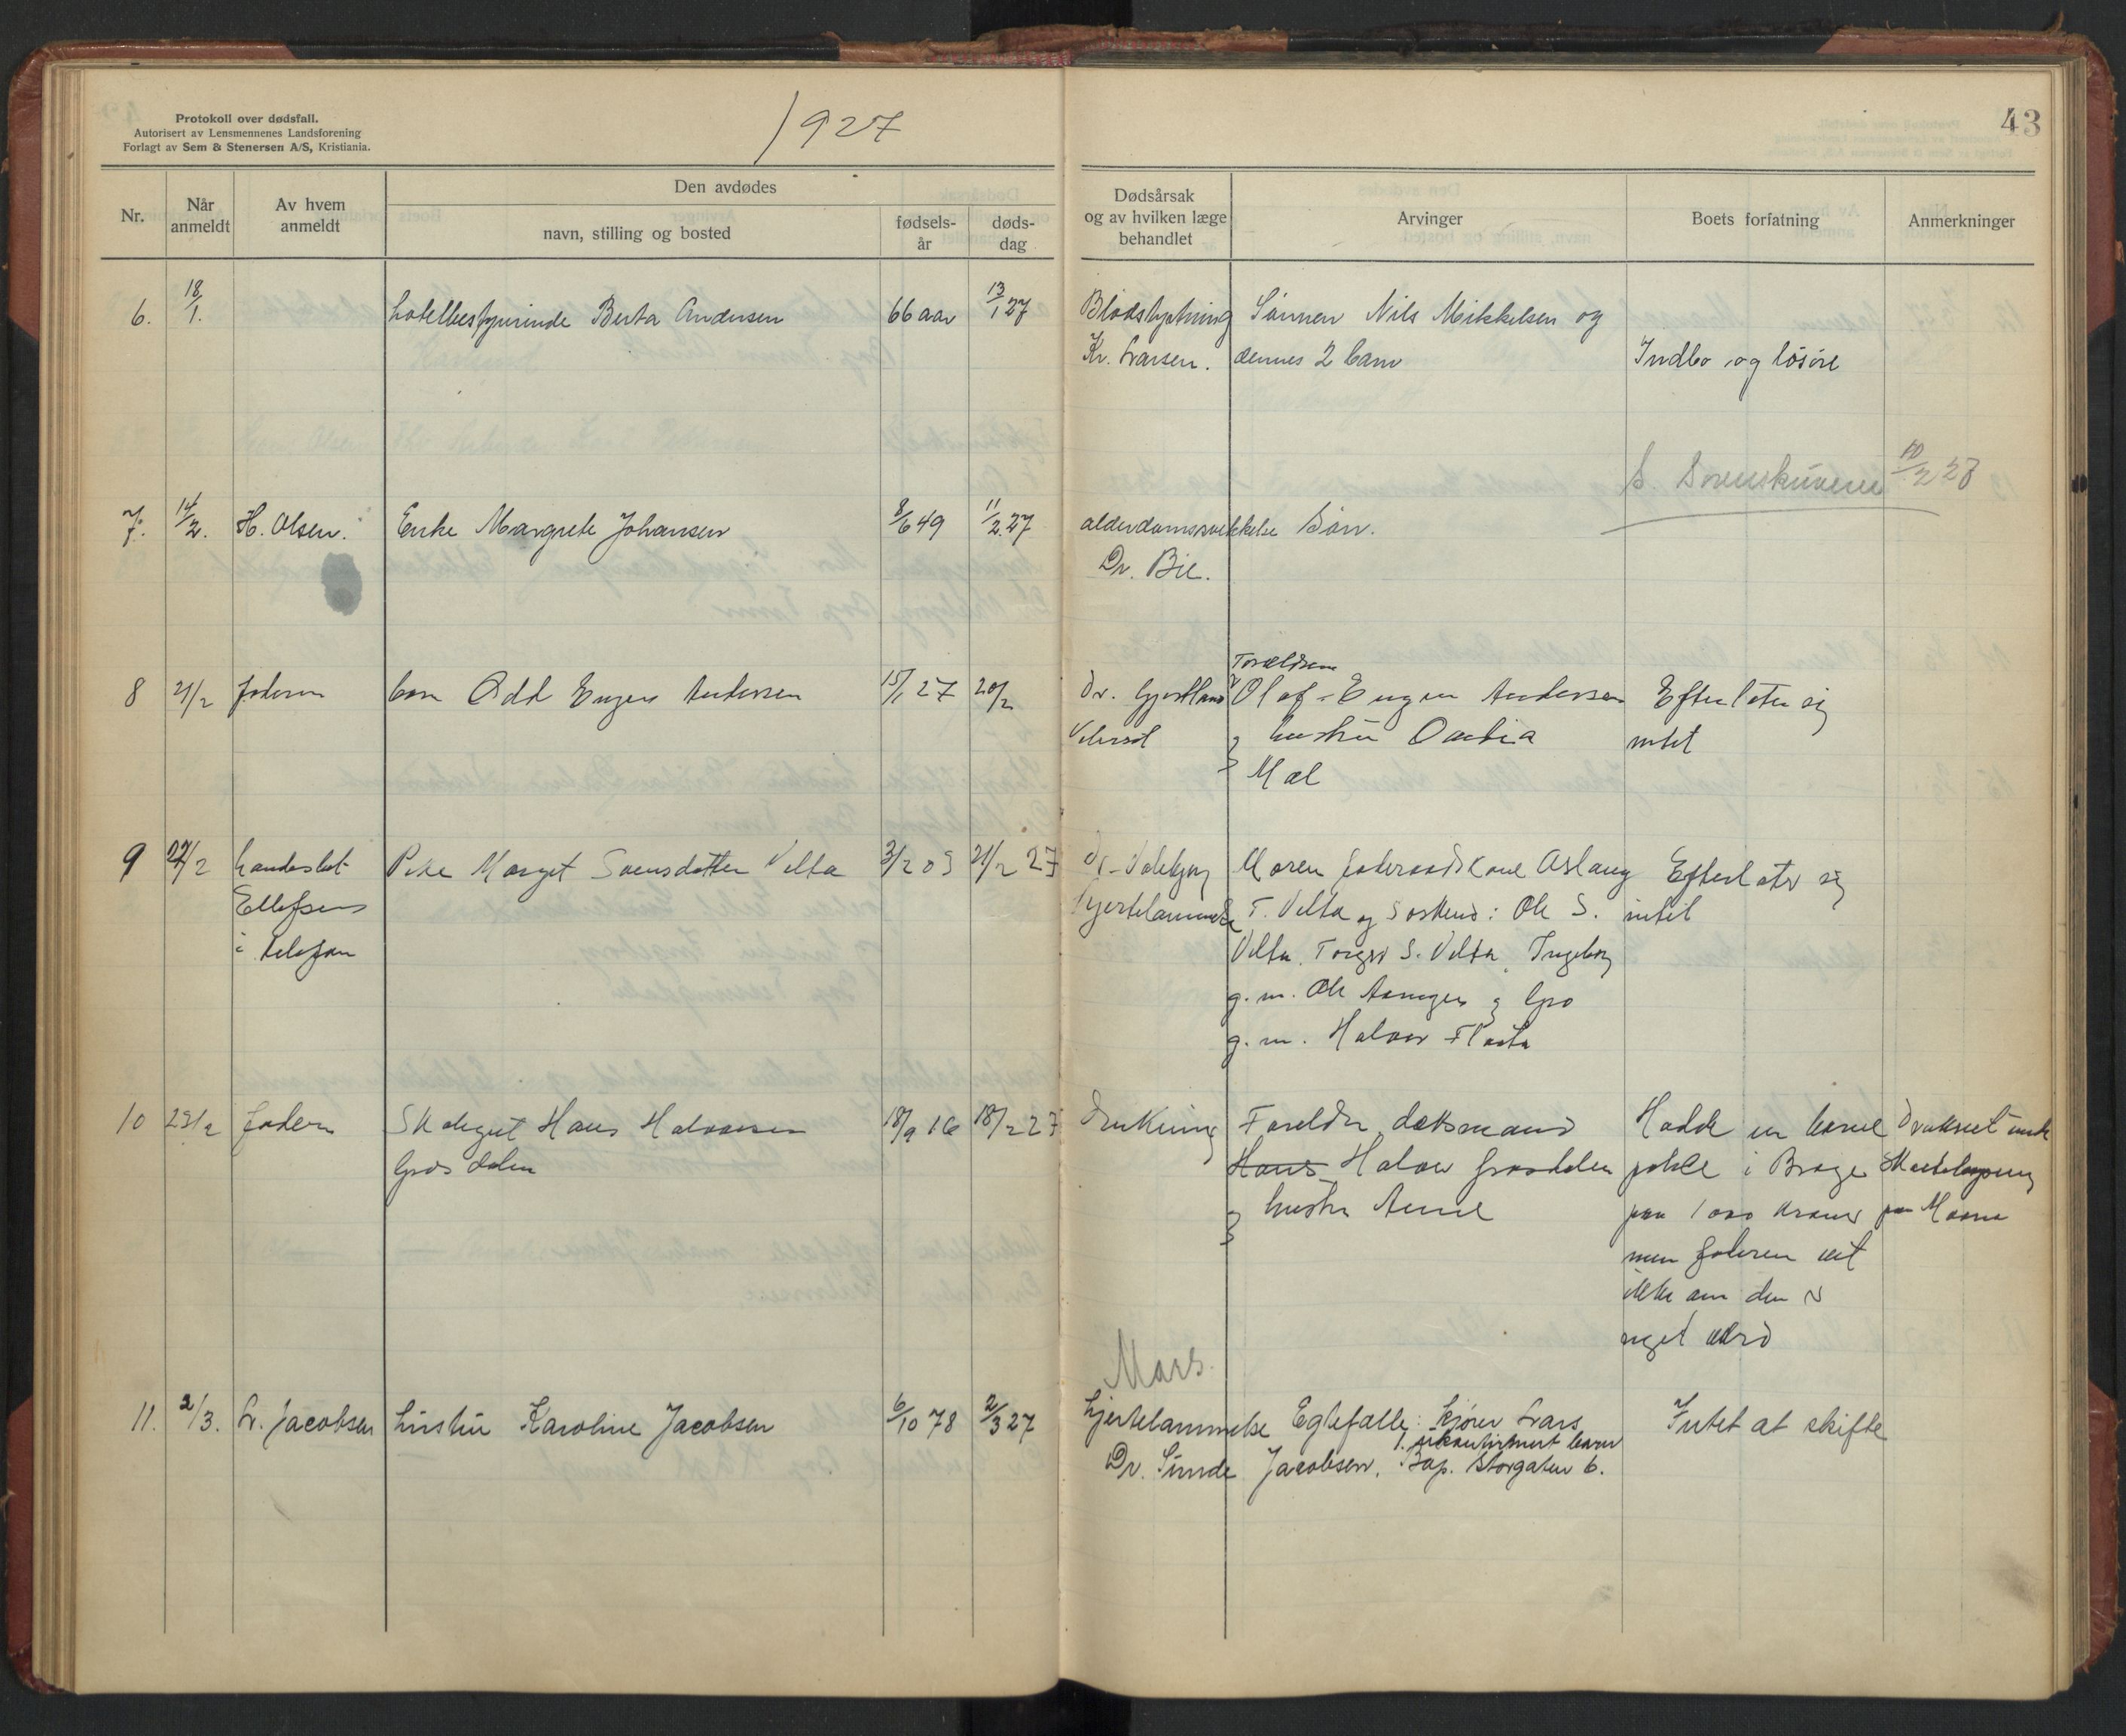 Protokoll over dødsfall.
Autorisert av Lensmennenes Landsforening
Forlagt av Sem & Stenersen A/S, Kristiania.
1927
43
Nr.
Når anmeldt
Av hvem anmeldt
Den avdødes
navn, stilling og bosted
fødsels-år
døds-dag
Dødsårsak og av hvilken læge behandlet
Arvinger
Boets forfatning
Anmerkninger
6. 18/1. Hotelbestyrerinde Berta Andersen 66 aar 13/1 27 Sønnen Nils Mikkelsen og
Kr. Larsen. dennes 2 barn Indbo og løsøre
S. Sorenskriveren 10/2 28
7. 14/2. H. Olsen. Enke Margrete Johansen 8/6 49 11/2 27 alderdomssvekkelse Søn.
Dr. Bie.
Forældrene
8 21/2 faderen barn Odd Eugen Andersen 15/1 27 20/2 Dr. Olaf Eugen Andersen Efterlater sig
og hustru intet
Mæl
9 22/2 Pike Marget Svensdatter Velta 3/2 03 21/2 27 Dr. Moren føderaadskone Aslaug Efterlater sig
Ellefsen Hjertelammelse T. Velta og Søskend: Ole S. intet
i telefon Velta, Torger S. Velta, Ingeborg
g. m. Ole og Gro
g. m. Halvor Flaata
10 23/2 faderen Skolegut Hans Halvorsen 18/9 16 18/2 27 Drukning Foreldre Hadde en barne Druknet under
Grosdalen Hans Halvor Grosdalen polise i Brage Skøiteløpning
og hustru Anne paa 1000 kroner paa Maana
men faderen vet
ikke om den er
noget værd
Mars.
11. 2/3. L. Jacobsen hustru Karoline Jacobsen 6/10 78 2/3 27 Hjertelammelse Egtefælle: kjører Lars Intet at skifte
1 ukonfirmert barn
Dr. Sunde Jacobsen. Bop. Storgaten 6.